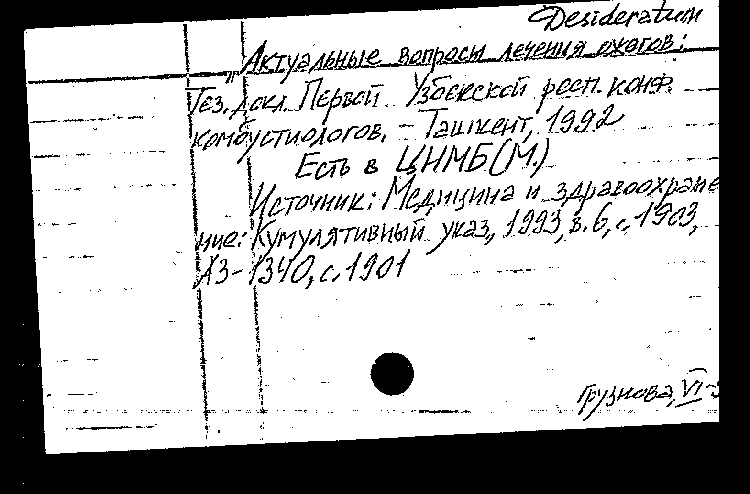 Desideratum
"Актуальные вопросы лечения ожогов:
Тез. докл. Первой Узбекской респ. конф.
комбустиологов. - Ташкент, 1992
Есть в ЦНМБ (М.)
Источник: Медицина и здравоохране
ние: Кумулятивный указ, 1993, в. 6, с. 1903,
А3-1340, с. 1901
Грузнова, VI-